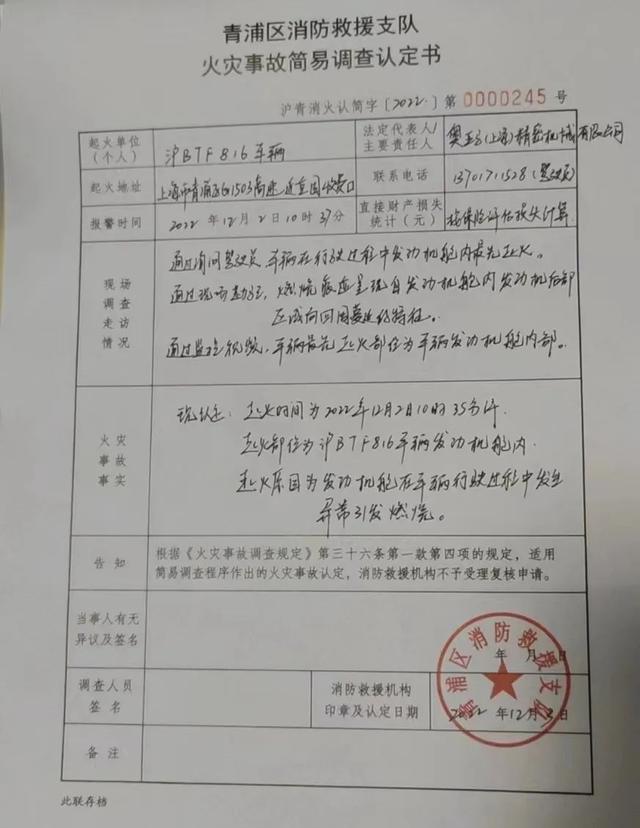 青浦区消防救援支队
火灾事故简易调查认定书
沪青消火认简字〔2022〕第 0000245 号
起火单位(个人) 沪BTF816车辆 法定代表人/主要责任人 (上海)精密机械有限公司
起火地址 上海市青浦区G1503高速 收费口 联系电话 1370171528(驾驶员)
报警时间 2022年12月2日10时37分 直接财产损失统计(元) 待保险评估损失计算
现场调查走访情况
通过询问驾驶员,车辆在行驶过程中发动机舱内最先起火。
通过现场勘验,燃烧痕迹呈现自发动机舱内发动机后部
区域向四周蔓延的特征。
通过监控视频,车辆最先起火部位为车辆发动机舱内部。
火灾事故事实
现认定:起火时间为2022年12月2日10时35分许.
起火部位为沪BTF816车辆发动机舱内.
起火原因为发动机舱在车辆行驶过程中发生
异常引发燃烧。
告知
根据《火灾事故调查规定》第三十六条第一款第四项的规定,适用
简易调查程序作出的火灾事故认定,消防救援机构不予受理复核申请。
当事人有无异议及签名
年 月 日
调查人员签名 消防救援机构印章及认定日期 2022年12月2日
青浦区消防救援支队
备注
此联存档